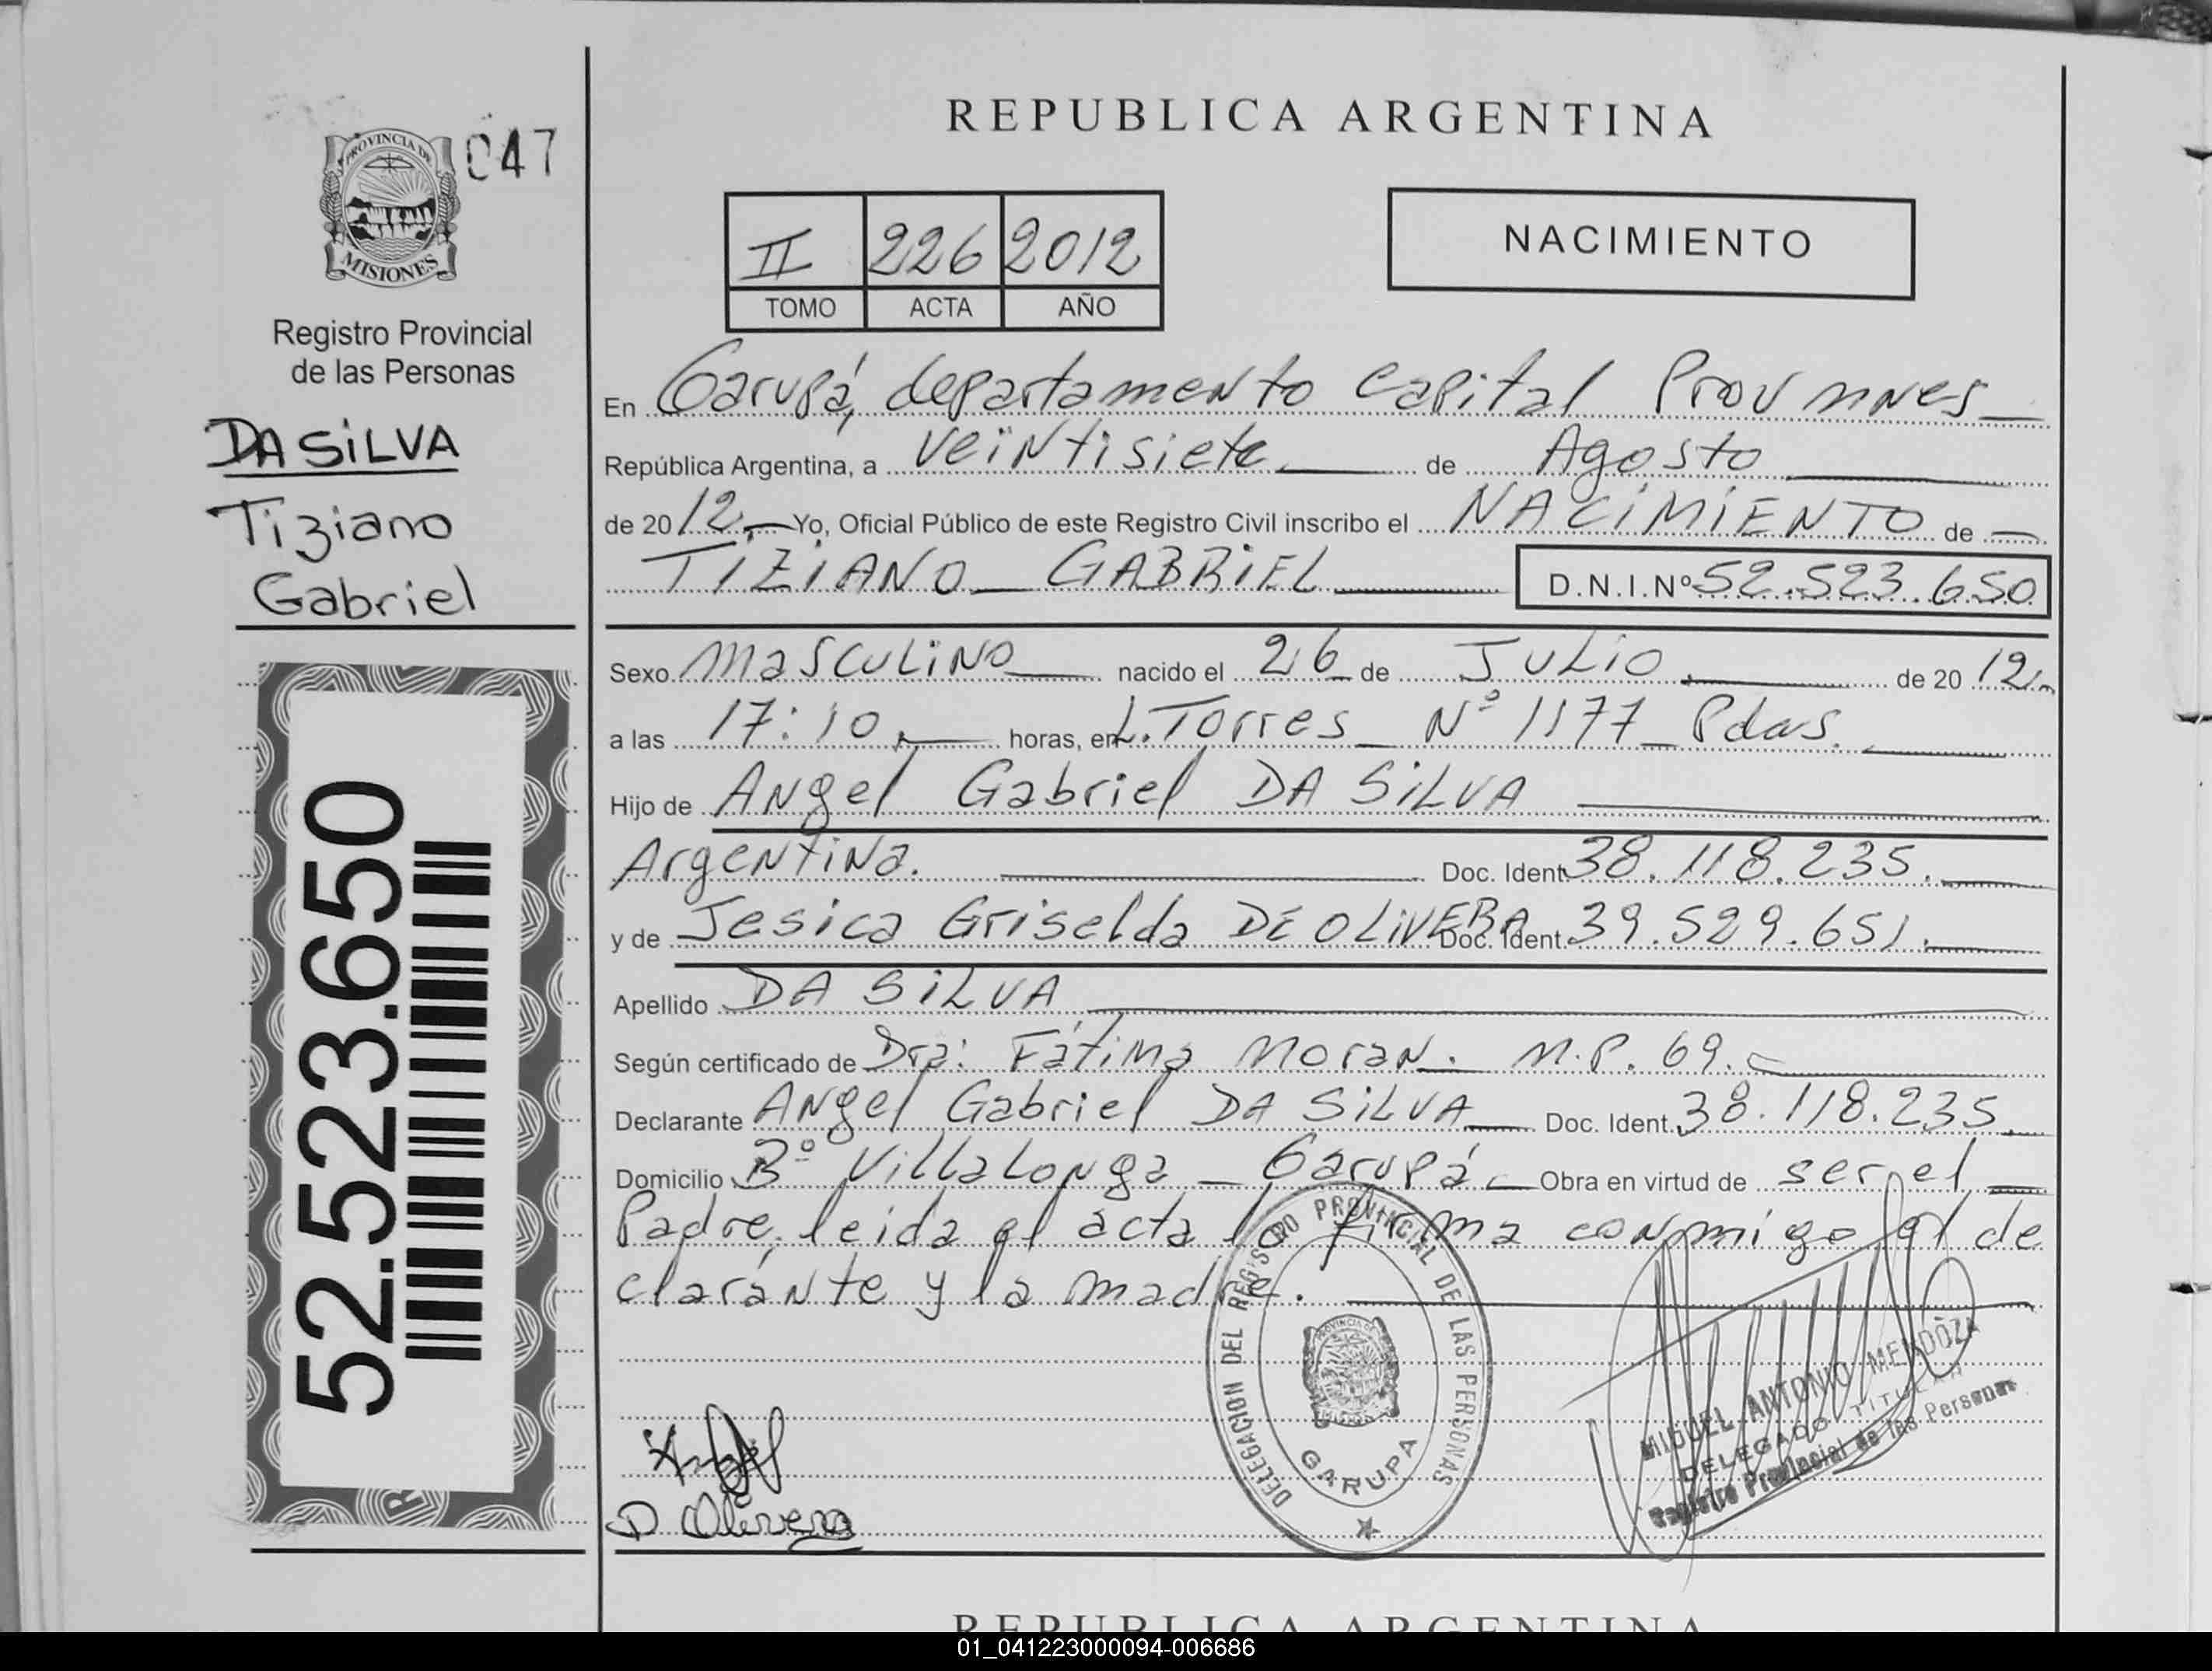 REPUBLICA ARGENTINA
PROVINCIA DE
MISIONES
047
Registro Provincial
de las Personas
DA SiLVA
Tiziano
Gabriel
52.523.650
II 226 2012
TOMO ACTA AÑO
NACIMIENTO
En Garupá, departamento Capital Prov mnes
República Argentina, a veintisiete de Agosto
de 2012 Yo, Oficial Público de este Registro Civil inscribo el NACiMiENTO de
TIZiANO GABRiEL D.N.I.Nº 52.523.650
Sexo masculino nacido el 26 de Julio de 2012
a las 17:10 horas, en L. Torres Nº 1177 Pdas.
Hijo de Angel Gabriel DA SiLVA
Argentina. Doc. Ident. 38.118.235.
y de Jesica Griselda DE OLiVERA Doc. Ident. 39.529.651.
Apellido DA SiLVA
Según certificado de Dra: Fátima Moran. M.P. 69.
Declarante Angel Gabriel DA SiLVA Doc. Ident. 38.118.235
Domicilio Bº Villalonga - Garupá Obra en virtud de ser el
Padre, leida el acta la firma conmigo el de
clarante y la madre.
DELEGACION DEL REGISTRO PROVINCIAL DE LAS PERSONAS
PROVINCIA DE
GARUPA
MIGUEL ANTONIO MENDOZA
DELEGADO TITULAR
Registro Provincial de las Personas
D Olivera
REPUBLICA ARGENTINA
01_041223000094-006686